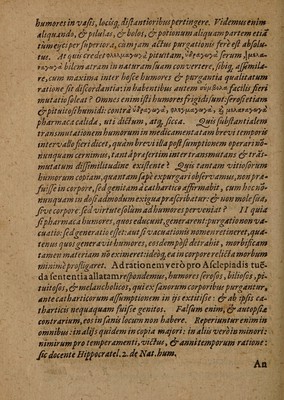 humores in vasis, locisq́, distantioribus pertingere. Videmus enim
aliquando, & pilulas, & bolos, & potionum aliquam partem etiā
tum eijci per superiora, cùm jam actus purgationis ferè est absolu-
tus. At quis credet pituitam, ferum
bilem atram in naturam suam convertere, sibiq́, assimila-
re, cum maxima inter hosce humores & purgantia qualitatum
ratione sit discordantia: in habentibus autem facilis fieri
mutatio soleat? Omnes enim isti humores frigidi sunt; serosi etiam
& pituitosi humidi: contrà
pharmaca calida, uti dictum, atq́, sicca. Quis substantialem
transmutationem humorum in medicamentatam brevi temporis
intervallo fieri dicet, quùm brevi illa post sumptionem operari nō-
nunquam cernimus, tantâ præsertim inter transmutans & trās-
mutatum dissimilitudine existente? Quis tantam vitiosorum
humorum copiam, quantam sæpè expurgari observamus, non præ-
fuisse in corpore, sed genitam à cathartico affirmabit, cum hoc nō-
nunquam in dosi admodum exigua præscribatur: & non mole sua,
sive corpore, sed virtute solùm ad humores perveniat? Ii quia
si pharmaca humores, quos educunt, generarent: purgationum va-
cuatio: sed generatio esset: aut si vacuationis nomen retineret, qua-
tenus quos generavit humores, eosdem pòst detrahit, morbificam
tamen materiam nō eximeret: ideoq́, ea in corpore relicta morbum
minimè profligaret. Ad rationem verò pro Asclepiadis tuē-
da sententia allatam respondemus, humores serosos, biliosos, pi-
tuitosos, & melancholicos, qui ex sanorum corporibus purgantur,
ante catharticorum assumptionem in ijs extitisse: & ab ipsis ca-
tharticis nequaquam fuisse genitos. Falsum enim, & autopsiæ
contrarium, eos in sanis locum non habere. Reperiuntur enim in
omnibus: in alijs quidem in copia majori: in alijs verò in minori:
nimirum pro temperamenti, victus, & anni temporum ratione:
sic docente Hippocrate l. 2. de Nat. hum.
An